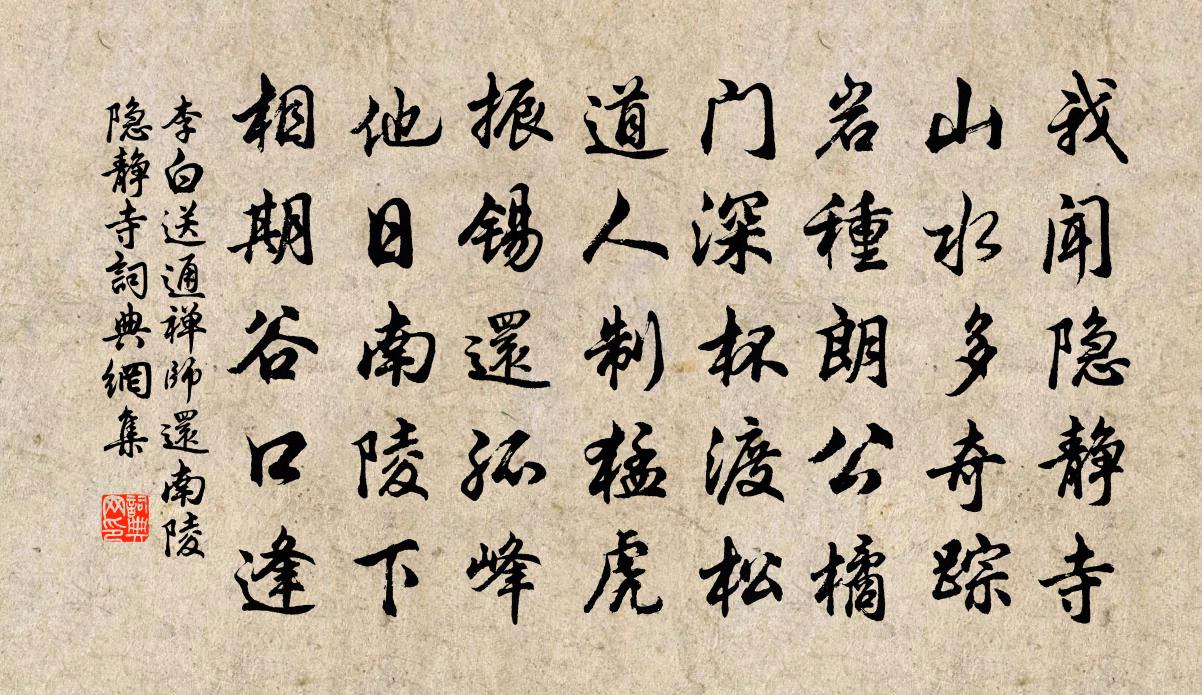 我闻隐静寺
山水多奇踪
岩種朗公橘
门深杯渡松
道人制猛虎
振锡還孤峰
他日南陵下
相期谷口逢
李白送通禅师還南陵
隐静寺詞典網集
詞典網印